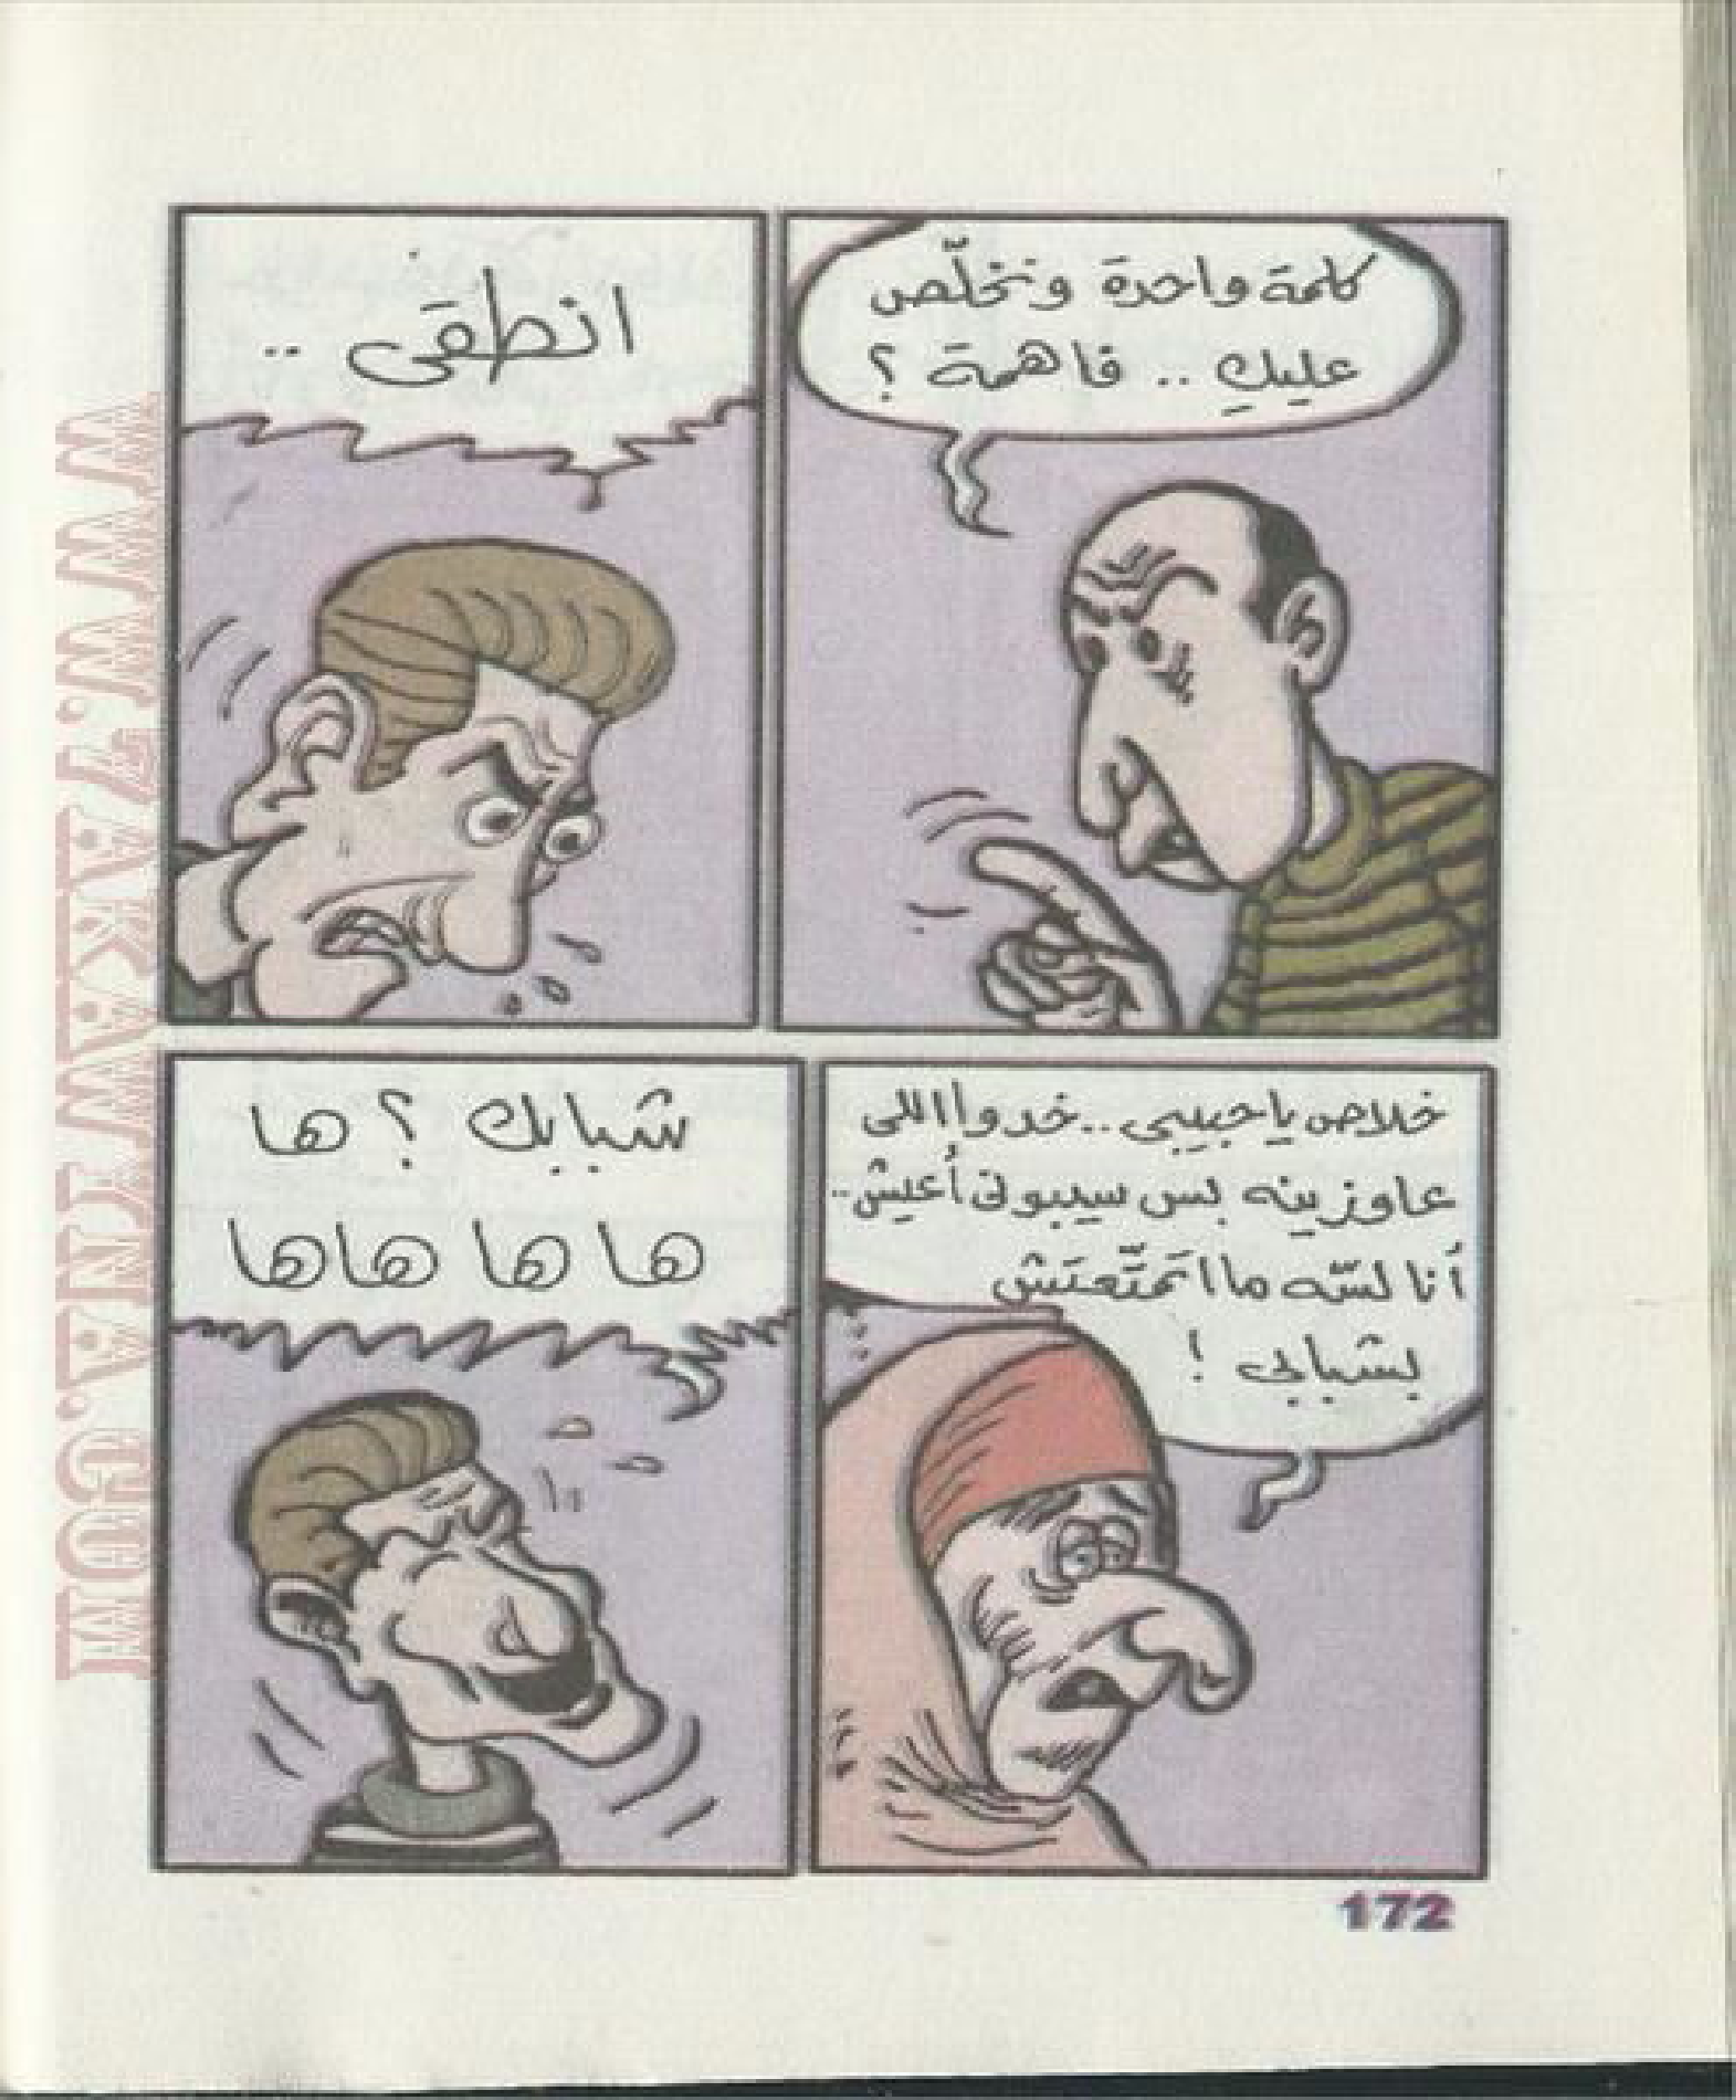 كلمة واحدة ونخلّص
عليكِ .. فاهمة ؟
انطقى ..
خلاص يا حبيبى .. خدوا اللى
عاوزينه بس سيبونى أعيش ..
أنا لسّه ما اتمَتَّعتش
بشبابى !
شبابك ؟ ها
ها ها هاها
172
WWW.7AKAWITNA.COM